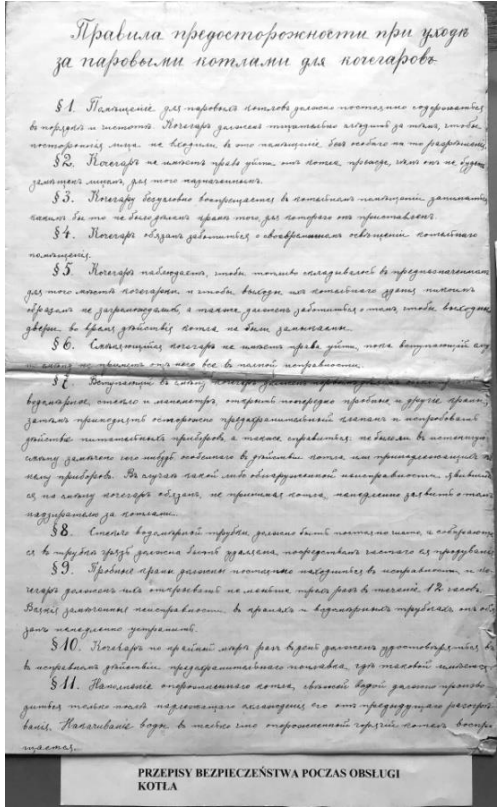 Правила предосторожности при уходѣ
за паровыми котлами для кочегаровъ
§ 1. Помѣщеніе для паровыхъ котловъ должно постоянно содержаться
въ порядкѣ и чистотѣ. Кочегаръ долженъ тщательно слѣдить за тѣмъ, чтобы
постороннія лица не входили въ это помѣщеніе безъ особаго на то разрѣшенія.
§ 2. Кочегаръ не имѣетъ права уйти отъ котла прежде, чѣмъ онъ не будетъ
замѣщенъ лицомъ, для того назначеннымъ.
§ 3. Кочегару безусловно воспрещается въ котельномъ помѣщеніи заниматься
какимъ бы то ни было дѣломъ кромѣ того, для котораго онъ приставленъ.
§ 4. Кочегаръ обязанъ заботиться о своевременномъ освѣщеніи котельнаго
помѣщенія.
§ 5. Кочегаръ наблюдаетъ, чтобы топливо складывалось въ предназначенномъ
для того мѣстѣ кочегарки и чтобы выходы изъ котельнаго зданія никоимъ
образомъ не загромождались, а также долженъ заботиться о томъ, чтобы выходныя
двери во время дѣйствія котла не были замыкаемы.
§ 6. Смѣняющійся кочегаръ не имѣетъ права уйти, пока вступающій
на смѣну не приметъ отъ него все въ полной исправности.
§ 7. Вступающій въ смѣну кочегаръ долженъ
водомѣрное стекло и манометръ, открыть поочередно пробные и другіе краны,
затѣмъ приподнять осторожно предохранительный клапанъ и испробовать
дѣйствіе питательныхъ приборовъ, а также справиться, не было ли въ
смѣну замѣчено чего нибудь особеннаго въ дѣйствіи котла или принадлежащихъ къ
нему приборовъ. Въ случаѣ какой либо обнаруженной неисправности,
ся на смѣну кочегаръ обязанъ, не принимая котла, немедленно заявить о томъ
надзирателю за котлами.
§ 8. Стекло водомѣрной трубки должно быть чисто, а собирающа-
ся въ трубкѣ грязь должна быть удаляема посредствомъ частаго ея продуванія
§ 9. Пробные краны должны постоянно находиться въ исправности и ко-
чегаръ долженъ ихъ открывать не менѣе трехъ разъ въ теченіе 12 часовъ.
Всякія замѣченныя неисправности въ кранахъ и водомѣрныхъ трубкахъ онъ обя-
занъ немедленно устранить.
§ 10. Кочегаръ по крайней мѣрѣ разъ въ день долженъ удостовѣряться
въ исправномъ дѣйствіи предохранительнаго поплавка, гдѣ таковой имѣется.
§ 11. Наполненіе опорожненнаго котла свѣжей водой должно произво-
диться только послѣ надлежащаго охлажденія его отъ предыдущаго разогрѣ-
ванія. Накачиваніе воды въ только что опорожненный горячій котелъ воспре-
щается.
PRZEPISY BEZPIECZEŃSTWA POCZAS OBSŁUGI
KOTŁA